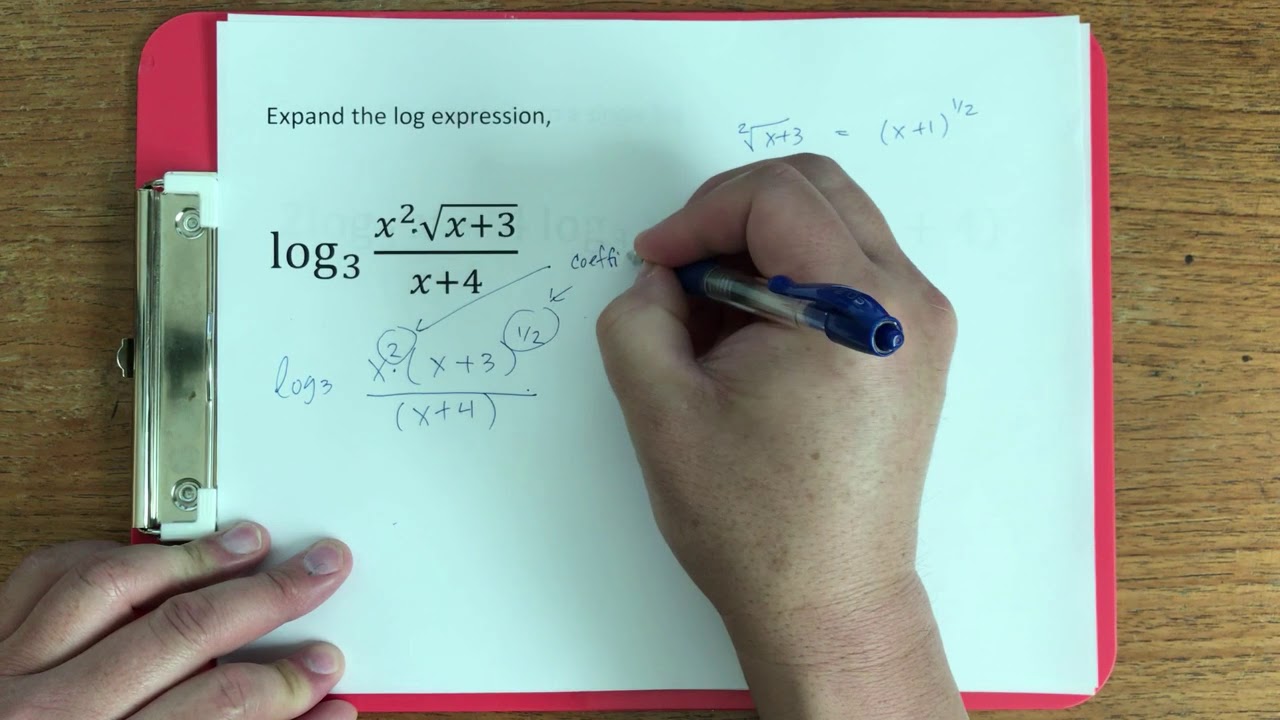 Expand the log expression,
²√x+3 = (x+1)^1/2
log₃ x²·√x+3 / x+4
coeffi
log₃ x²·(x+3)^1/2 / (x+4)